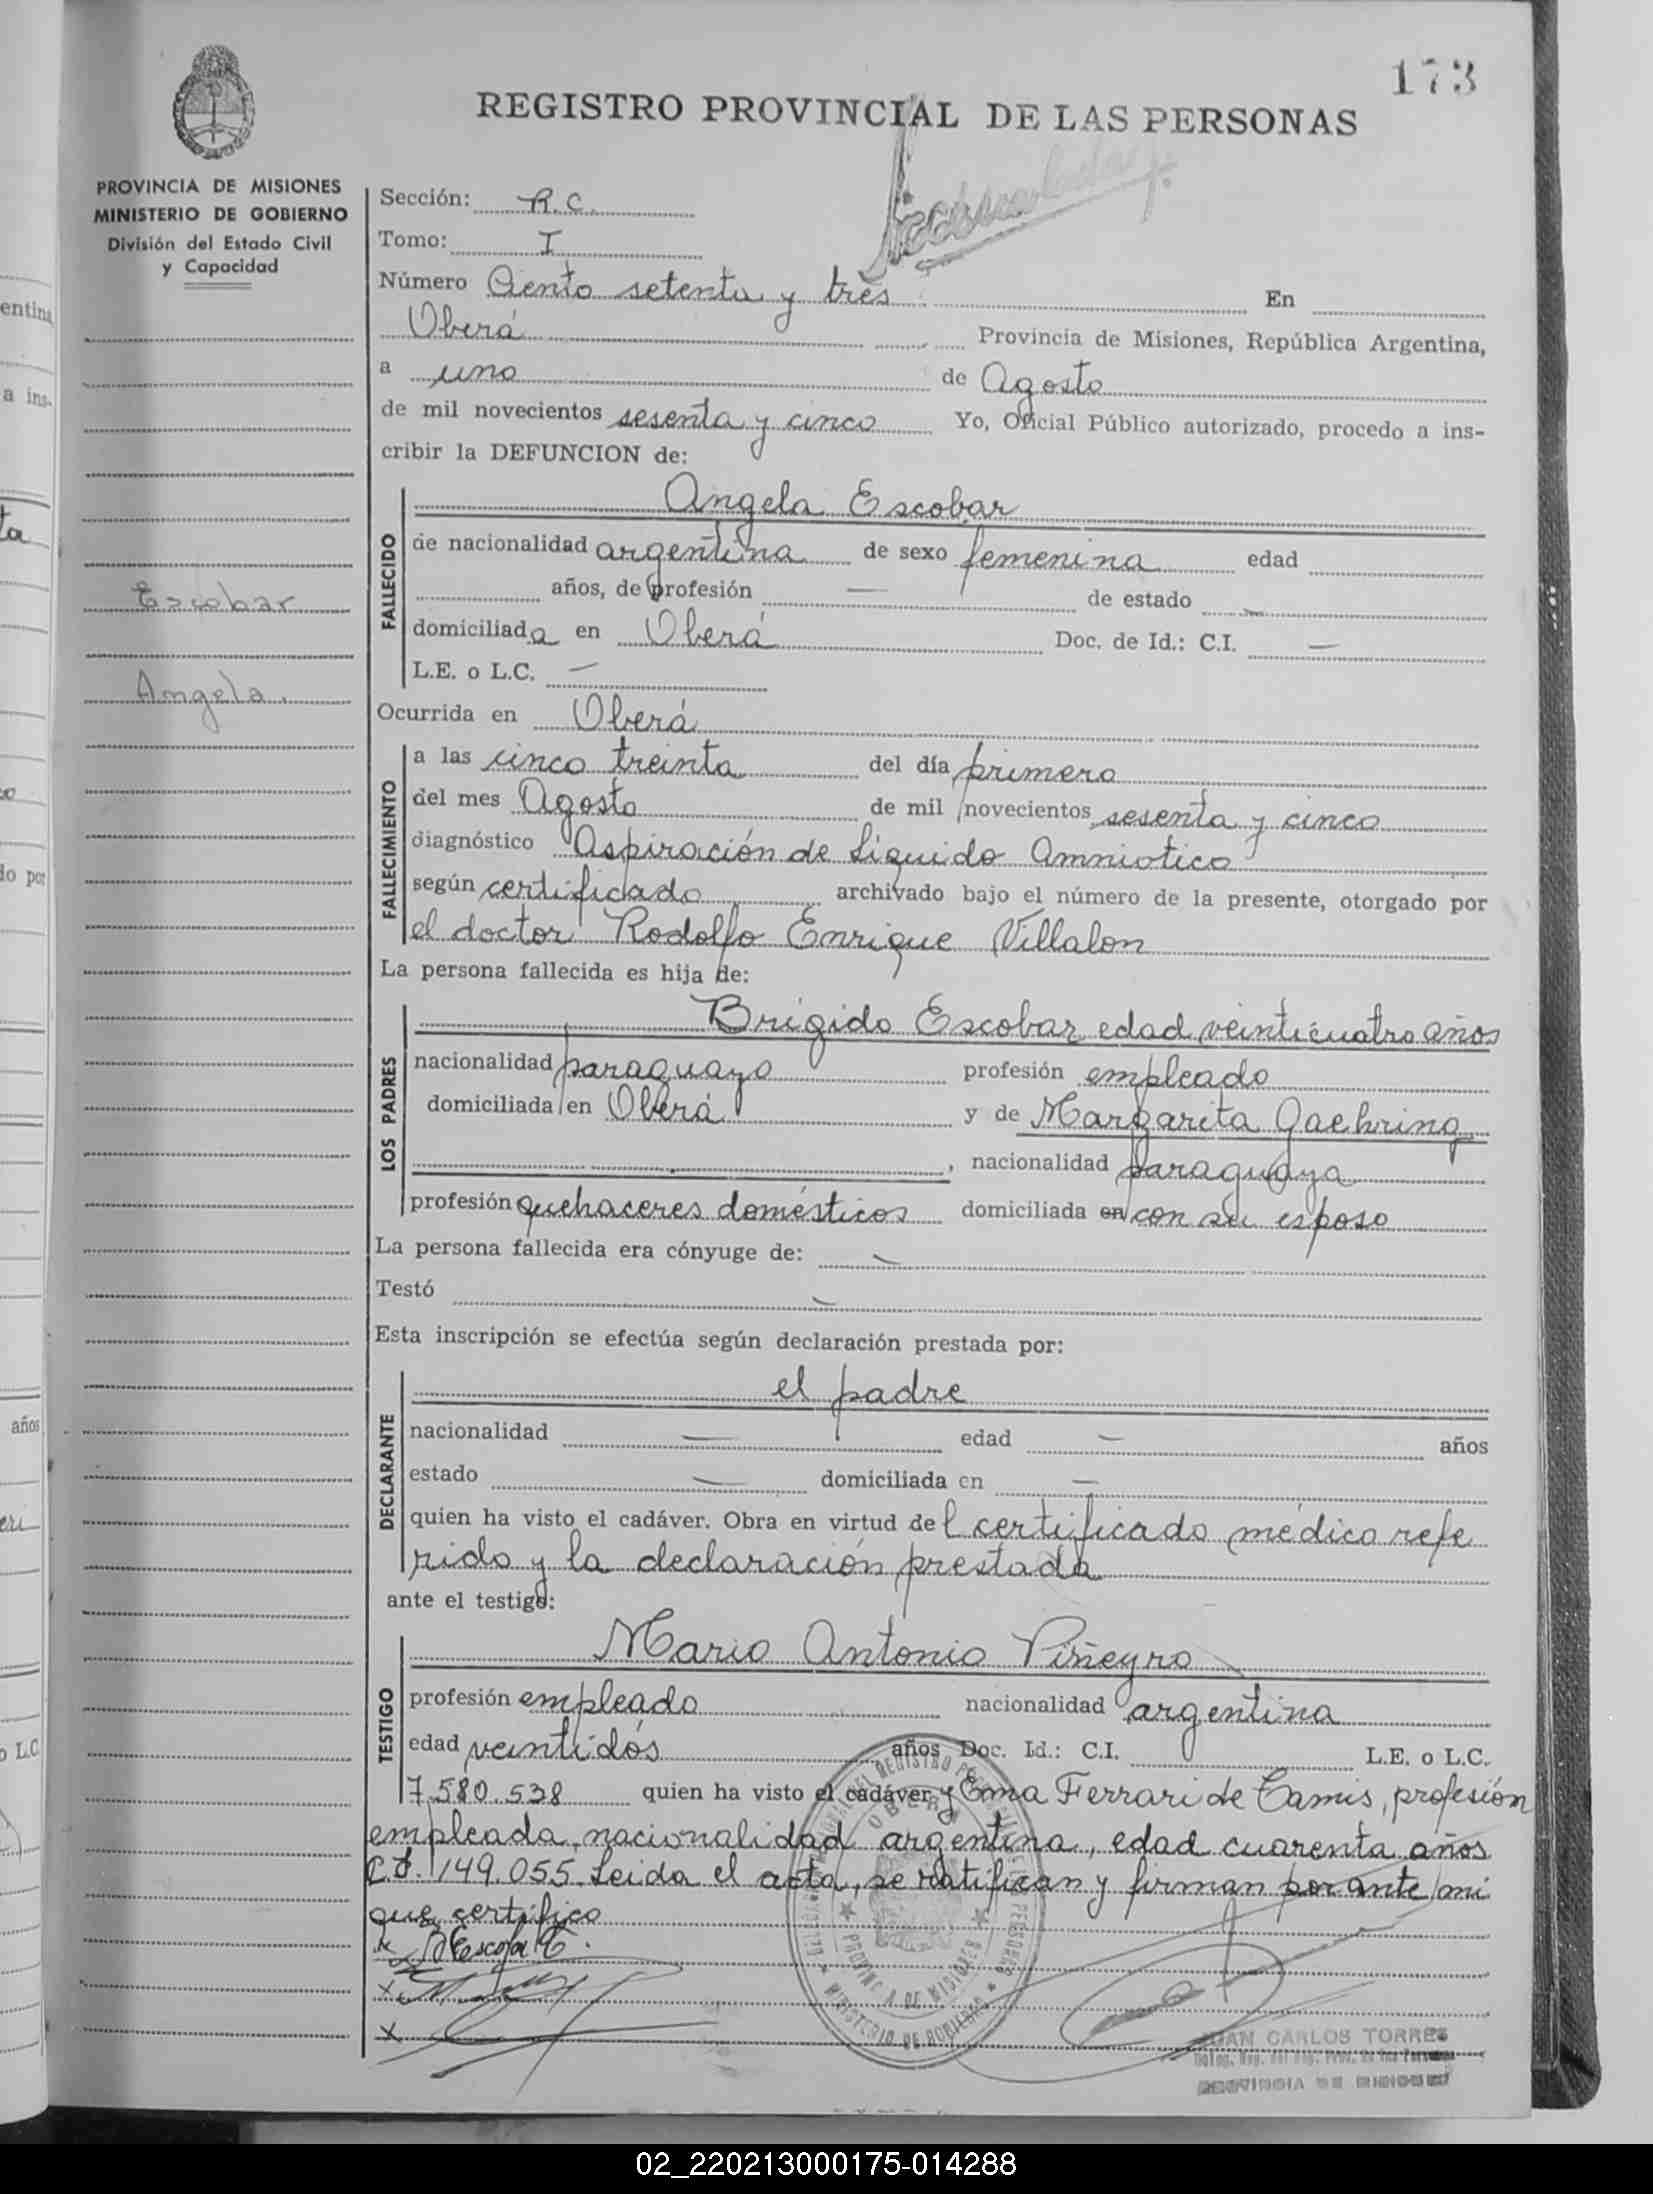 173
REGISTRO PROVINCIAL DE LAS PERSONAS
PROVINCIA DE MISIONES
MINISTERIO DE GOBIERNO
División del Estado Civil
y Capacidad
Escobar
Angela.
Sección: R.C.
Tomo: I
Número Ciento setenta y tres En
Oberá Provincia de Misiones, República Argentina,
a uno de Agosto
de mil novecientos sesenta y cinco Yo, Oficial Público autorizado, procedo a ins-
cribir la DEFUNCION de:
FALLECIDO
Angela Escobar
de nacionalidad argentina de sexo femenina edad
años, de profesión — de estado —
domiciliada en Oberá Doc. de Id.: C.I. —
L.E. o L.C. —
Ocurrida en Oberá
FALLECIMIENTO
a las cinco treinta del día primero
del mes Agosto de mil novecientos sesenta y cinco
diagnóstico Aspiración de Líquido Amniotico
según certificado archivado bajo el número de la presente, otorgado por
el doctor Rodolfo Enrique Villalon
La persona fallecida es hija de:
LOS PADRES
Brígido Escobar edad veinticuatro años
nacionalidad paraguayo profesión empleado
domiciliada en Oberá y de Margarita Gaehring
, nacionalidad paraguaya
profesión quehaceres domésticos domiciliada en con su esposo
La persona fallecida era cónyuge de: —
Testó —
Esta inscripción se efectúa según declaración prestada por:
DECLARANTE
el padre
nacionalidad — edad — años
estado — domiciliada en —
quien ha visto el cadáver. Obra en virtud del certificado médico refe
rido y la declaración prestada
ante el testigo:
TESTIGO
Mario Antonio Piñeyro
profesión empleado nacionalidad argentina
edad veintidós años Doc. Id.: C.I. L.E. o L.C.
7.580.538 quien ha visto el cadáver y Ema Ferrari de Tamis, profesión
empleada, nacionalidad argentina, edad cuarenta años
C.I. 149.055. Leida el acta, se ratifican y firman por ante mi
que certifico
OBERA
PROVINCIA DE MISIONES
MINISTERIO DE GOBIERNO
JUAN CARLOS TORRES
PROVINCIA DE MISIONES
02_220213000175-014288